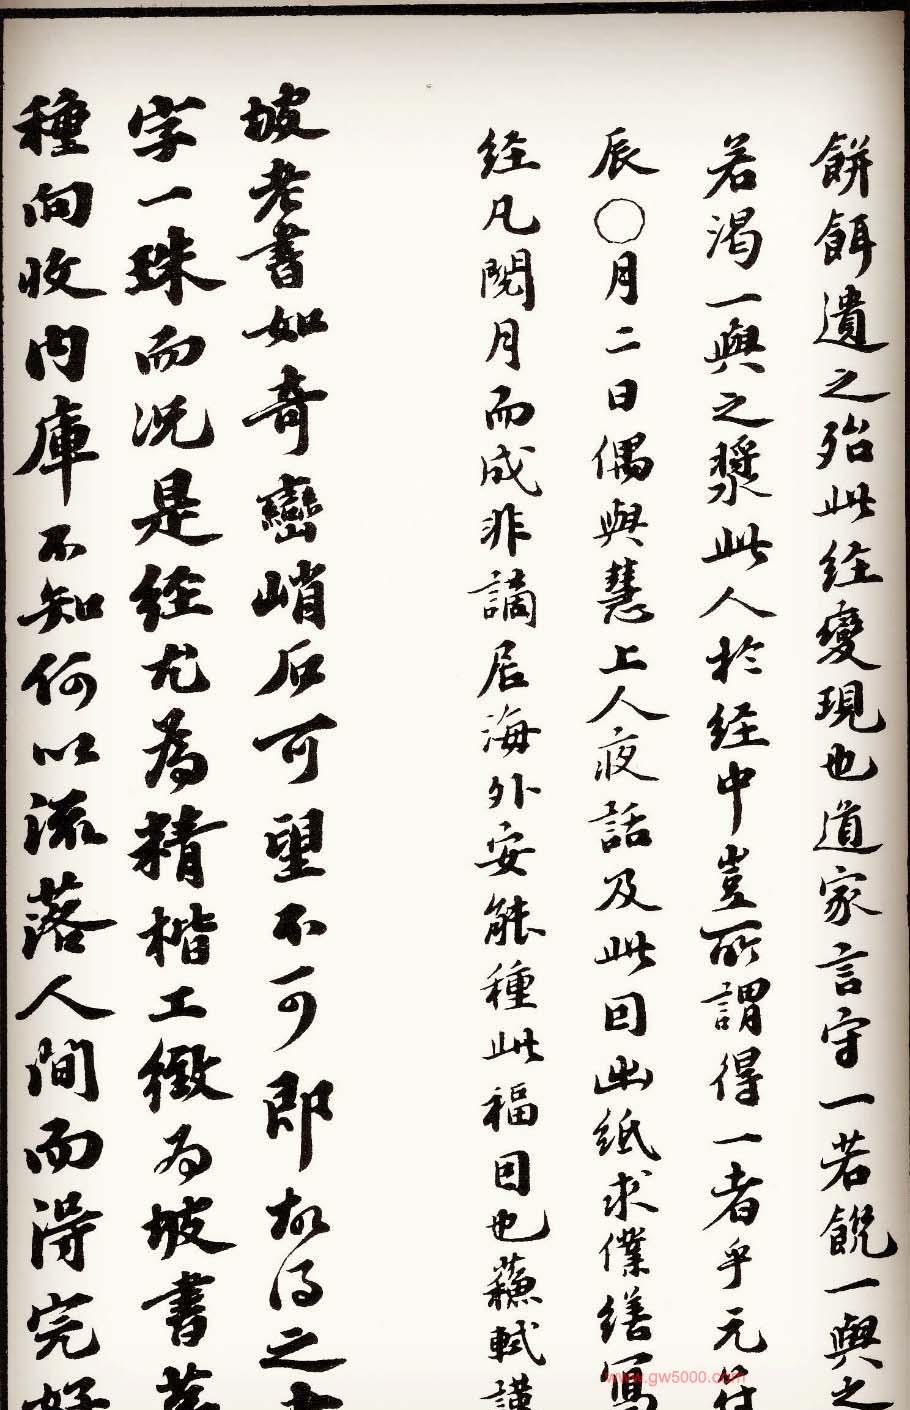 餅餌遺之殆此经變現也道家言守一若飢一與之
若渴一與之漿此人於经中豈所謂得一者乎元符
辰〇月二日偶與慧上人夜話及此因出紙求僕繕寫
经凡閱月而成非謫居海外安能種此福田也蘓軾謹
坡老書如奇巒峭石可望不可即故得之
字一珠而况是经尤為精楷工緻为坡書
種向收内庫不知何以流落人間而得完好
www.gw5000.com